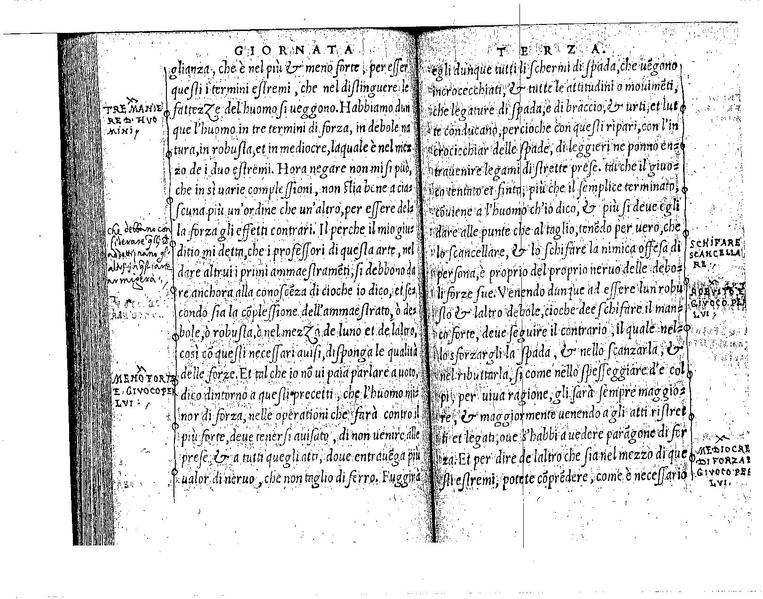 GIORNATA
glianza, che è nel più & meno forte, per esser
questi i termini estremi, che nel distinguere le
fattezze del huomo si ueggono. Habbiamo dun
que l'huomo in tre termini di forza, in debole na
tura, in robusta, et in mediocre, laquale è nel mez
zo de i duo estremi. Hora negare non mi si può,
che in sì uarie complessioni, non stia bene a cia-
scuna più un'ordine che un'altro, per essere del-
la forza gli effetti contrari. Il perche il mio giu-
ditio mi detta, che i professori di questa arte, nel
dare altrui i primi ammaestramēti, si debbono da
re anchora alla conoscēza di cioche io dico, et se
condo sia la cōplessione dell'ammaestrato, ò de-
bole, ò robusta, ò nel mezzo de luno et de laltro,
cosi cō questi necessari auisi, disponga le qualità
delle forze. Et tal che io nō ui paia parlare a uoto,
dico dintorno a questi precetti, che l'huomo mi
nor di forza, nelle operationi che farà contro il
più forte, deue tenersi auisato, di non uenire alle
prese, & a tutti quegli atti, doue entrauēga più
ualor di neruo, che non taglio di ferro. Fuggirà
TRE MANIE
RE D'HUO
MINI,
MENO FORTE
E, GIVOCO PER
LVI:
TERZA.
egli dunque tutti li schermi di spada, che uēgono
incrocecchiati, & tutte le attitudini o mouimēti,
che legature di spada, e di braccio, & urti, et lut
te conducano, percioche con questi ripari, con l'in
crocicchiar delle spade, di leggieri ne ponno en-
trauenire legami di strette prese. tal che il giuo-
co tentato et finto, più che il semplice terminato,
cōuiene a l'huomo ch'io dico, & più si deue egli
dare alle punte che al taglio, tenēdo per uero, che
lo scancellare, & lo schifare la nimica offesa di
persona, è proprio del proprio neruo delle debo-
li forze sue. Venendo dunque ad essere lun robu
sto & laltro debole, cioche dee schifare il man-
co forte, deue seguire il contrario, il quale nel-
lo sforzargli la spada, & nello scanzarla, &
nel ributtarla, si come nello spesseggiare d'e col
pi, per uiua ragione, gli sarà sempre maggio-
re, & maggiormente uenendo a gli atti ristret
ti et legati, oue s'habbi a uedere paragone di for
za. Et per dire de laltro che sia nel mezzo di que
sti estremi, potete cōprēdere, come è necessario
SCHIFARE
SCANCELLA
RE,
ROBVSTO E
GIVOCO PER
LVI:
MEDIOCRE
DI FORZA E
GIVOCO PER
LVI.